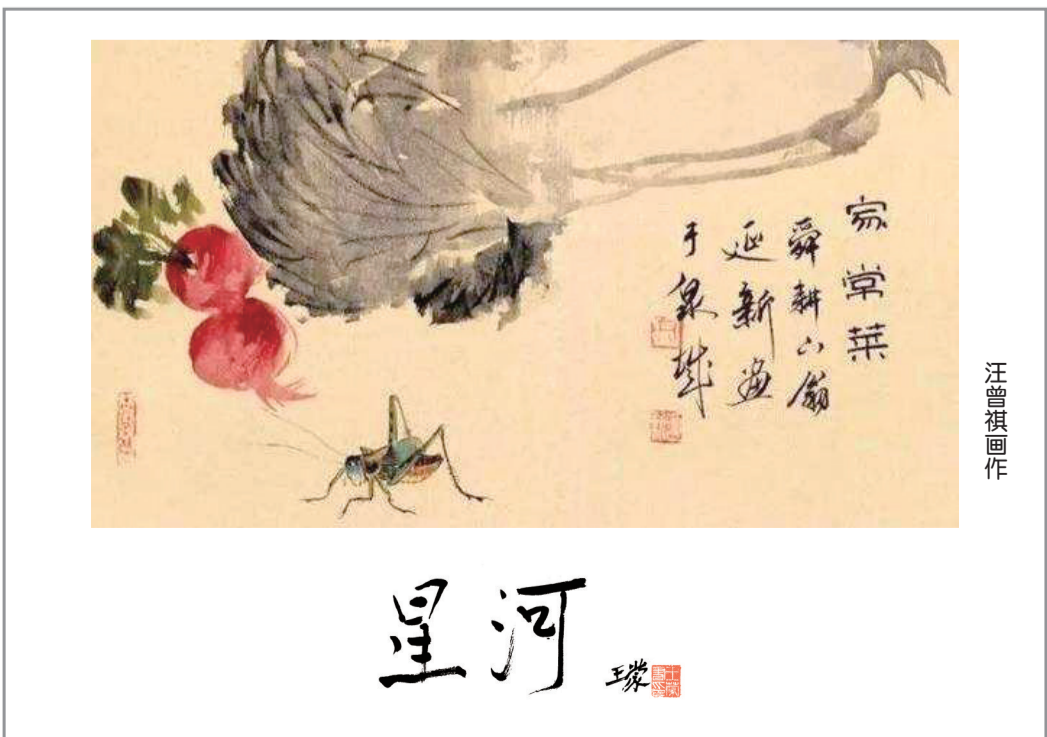 家常菜
舜耕山翁
延新画
于泉城
汪曾祺画作
星河
王蒙